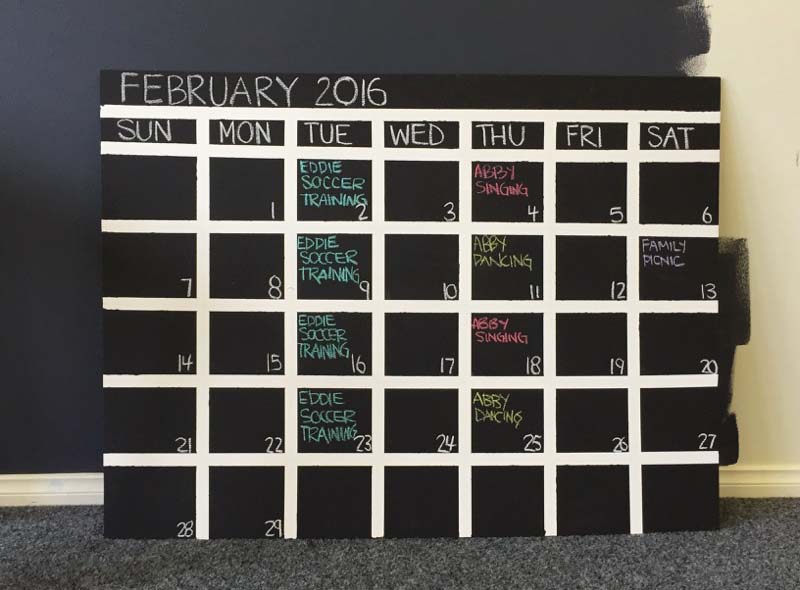 FEBRUARY 2016
SUN MON TUE WED THU FRI SAT
EDDIE
SOCCER
TRAINING
ABBY
SINGING
1 2 3 4 5 6
EDDIE
SOCCER
TRAINING
ABBY
DANCING
FAMILY
PICNIC
7 8 9 10 11 12 13
EDDIE
SOCCER
TRAINING
ABBY
SINGING
14 15 16 17 18 19 20
EDDIE
SOCCER
TRAINING
ABBY
DANCING
21 22 23 24 25 26 27
28 29